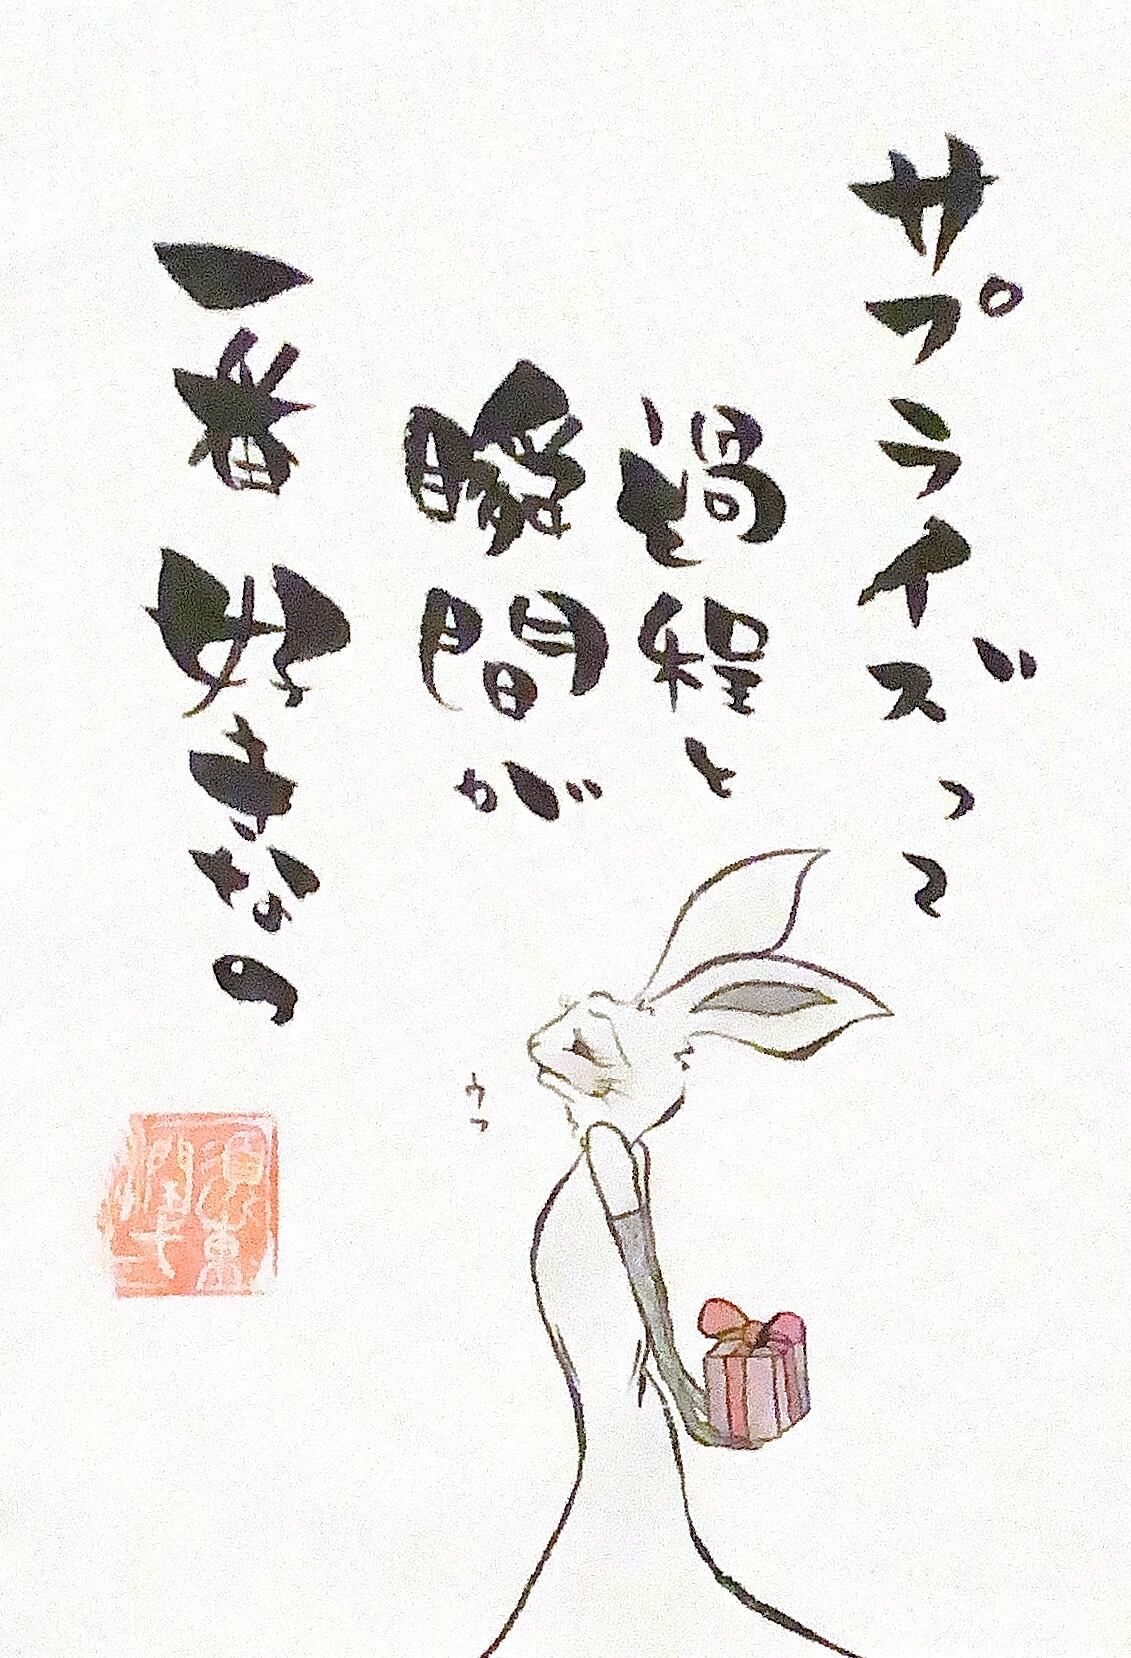 サプライズって
過程と
瞬間が
一番好きなの
ウフ